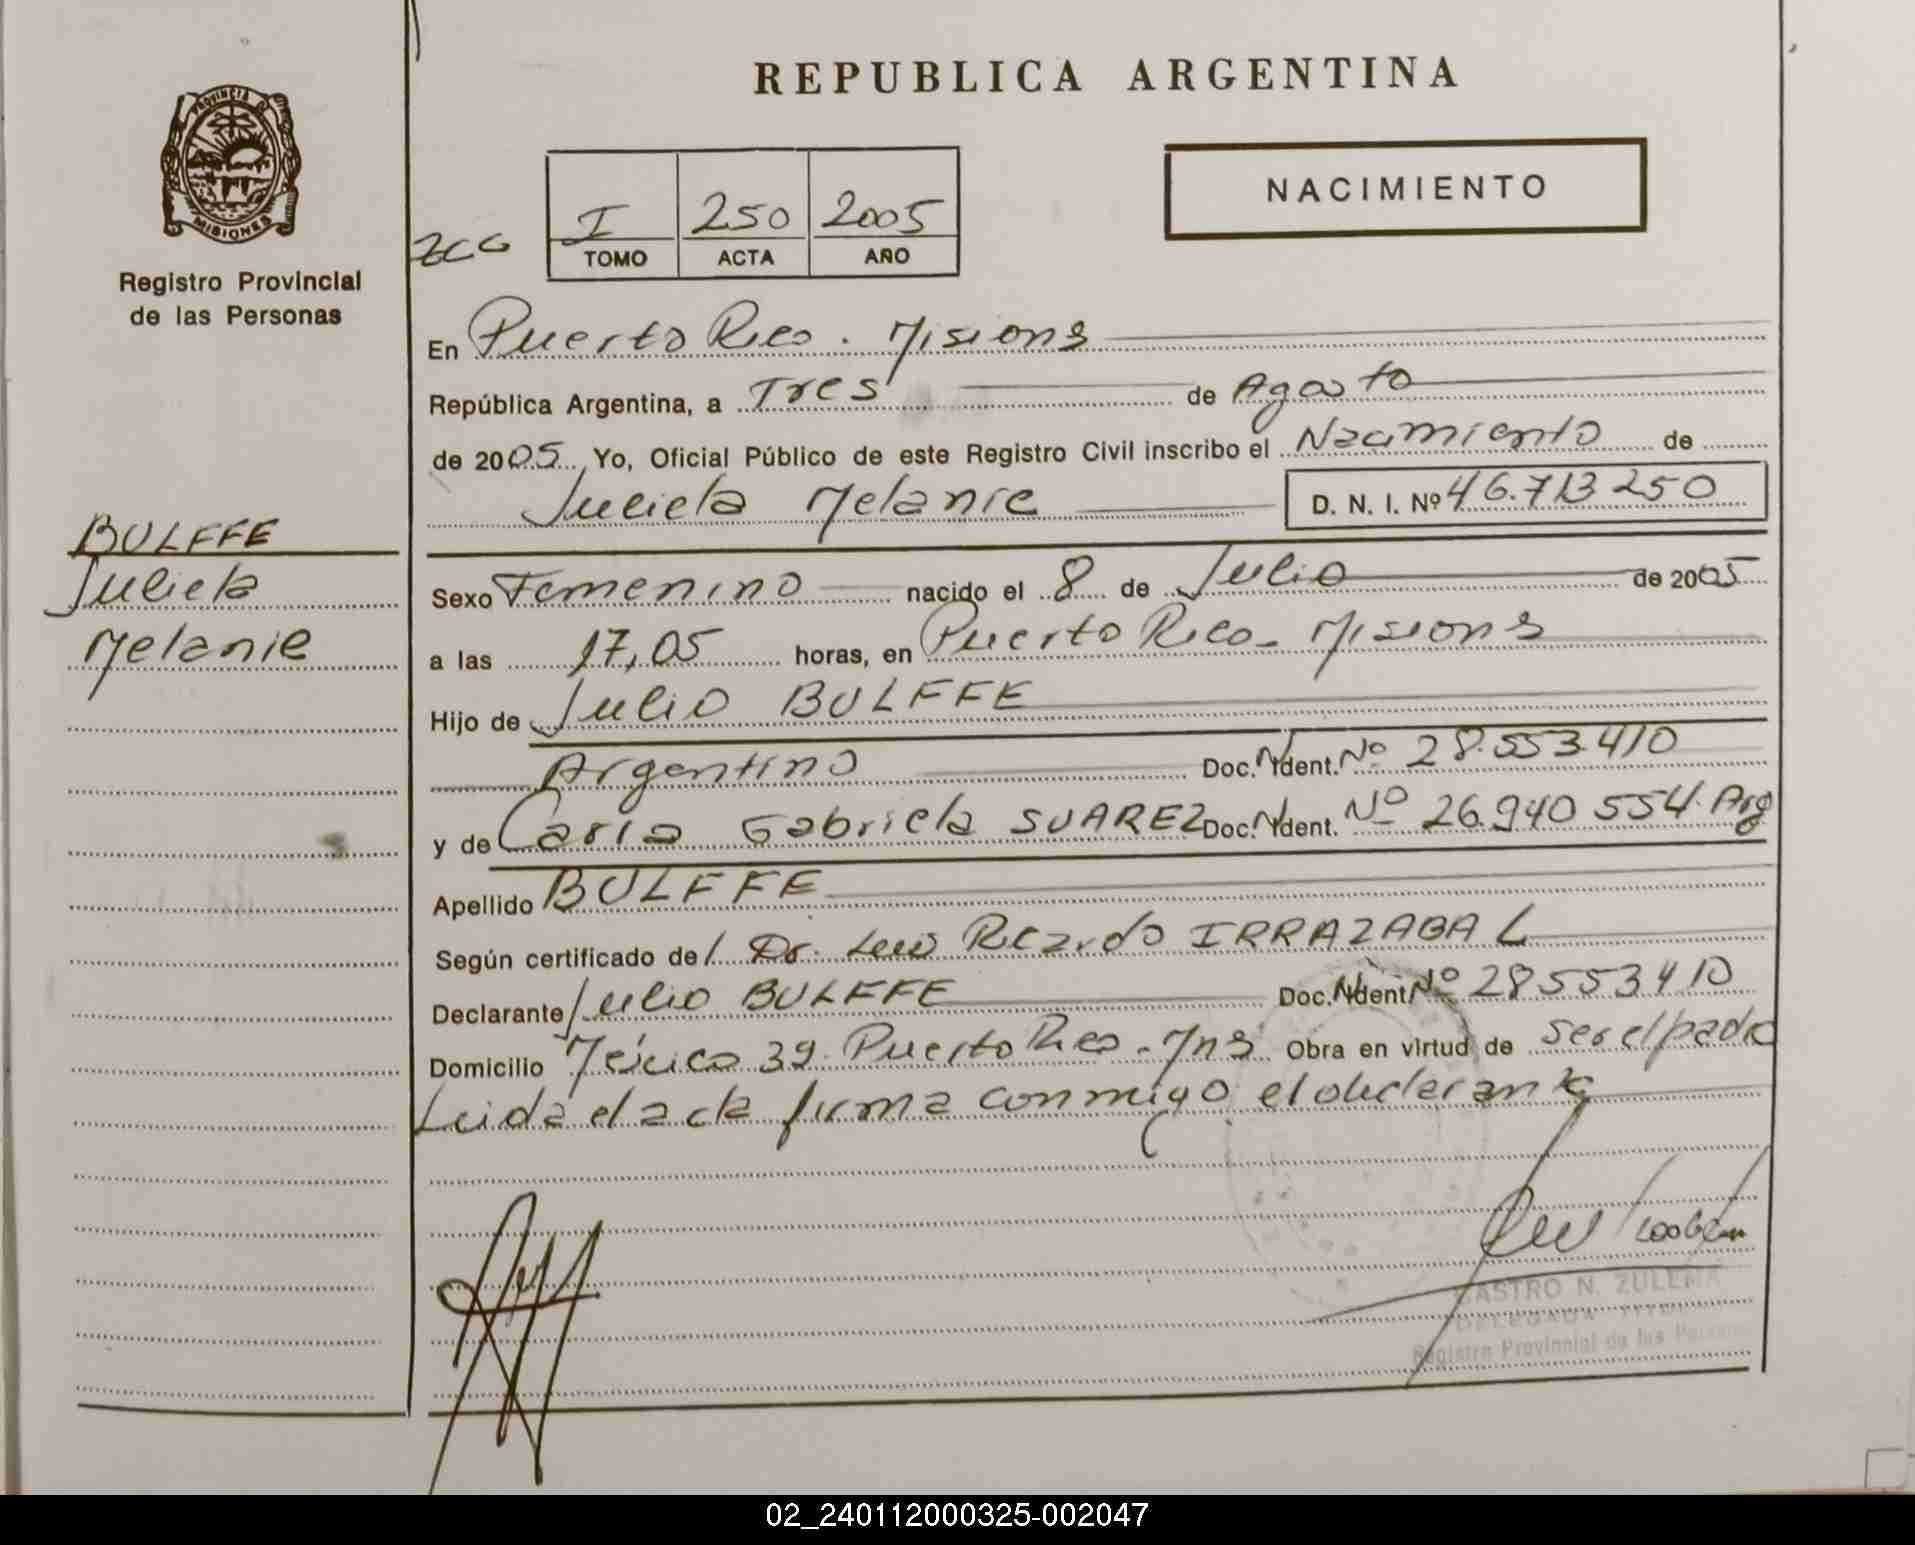 REPUBLICA ARGENTINA
PROVINCIA D
MISIONES
Registro Provincial
de las Personas
I 250 2005
TOMO ACTA AÑO
NACIMIENTO
En Puerto Rico. Misions
República Argentina, a Tres de Agosto
de 2005 Yo, Oficial Público de este Registro Civil inscribo el Nacimiento de
Julieta Melanie D. N. I. Nº 46.713250
BULFFE
Julieta
Melanie
Sexo Femenino nacido el 8 de Julio de 2005
a las 17,05 horas, en Puerto Rico. Misions
Hijo de Julio BULFFE
Argentino Doc. Ident. Nº 28.553.410
y de Carla Gabriela SUAREZ Doc. Ident. Nº 26.940 554. Arg
Apellido BULFFE
Según certificado del Dr. Luis Ricardo IRRAZABAL
Declarante Julio BULFFE Doc. Ident Nº 28553410
Domicilio México 39. Puerto Rico. Mns Obra en virtud de ser el padre
Leida el acta firma conmigo el declarante
CASTRO N. ZULEMA
DELEGADA TITUL
Registro Provincial de las Personas
02_240112000325-002047